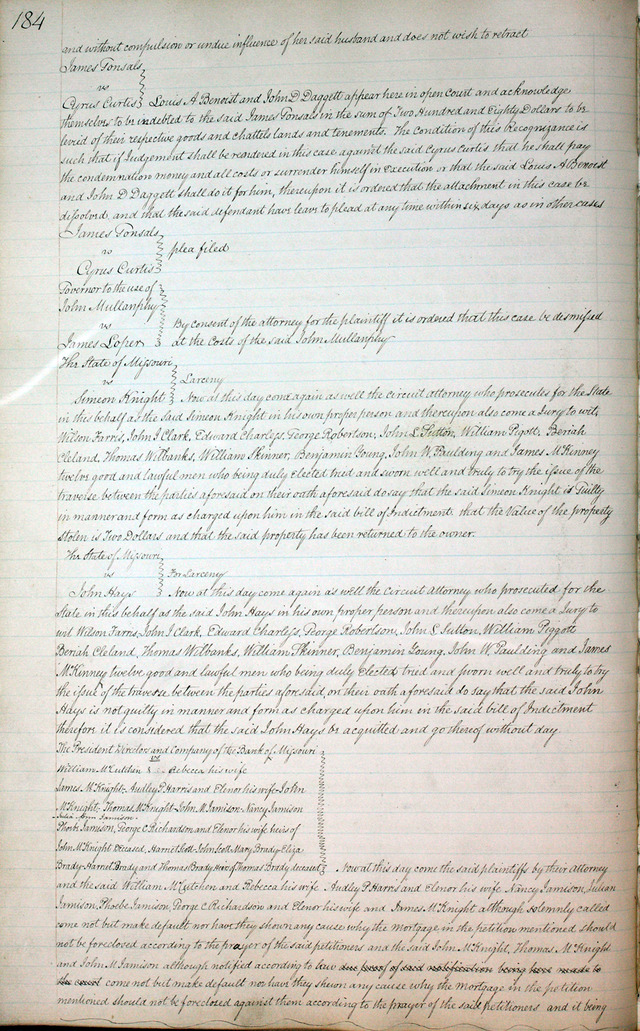 184
and without compulsion or undue influence of her said husband and does not wish to retract
James Tonsals
vs
Cyrus Curtis Louis A Benoist and John D Daggett appear here in open Court and acknowledge
themselves to be indebted to the said James Tonsals in the sum of Two Hundred and Eighty Dollars to be
levied of their respective goods and chattels lands and tenements. The condition of this Recognizance is
such that if Judgement shall be rendered in this case against the said Cyrus Curtis that he shall pay
the condemnation money and all costs or surrender himself in execution or that the said Louis A Benoist
and John D Daggett shall do it for him, thereupon it is ordered that the attachment in this case be
dissolved, and that the said defendant have leave to plead at any time within six days as in other cases
James Tonsals
vs plea filed
Cyrus Curtis
Governor to the use of
John Mullanphy
vs By consent of the attorney for the plaintiff it is ordered that this case be desmissed
James Loper at the costs of the said John Mullanphy
The State of Missouri
vs Larceny
Simeon Knight Now at this day come again as well the circuit attorney who prosecutes for the State
in this behalf as the said Simeon Knight in his own proper person and thereupon also come a Jury to wit,
Wilson Farris, John I Clark, Edward Charless, George Robertson, John L Sutton, William Pigott, Beriah
Cleland, Thomas Witbanks, William Skinner, Benjamin Young, John W. Paulding and James McKinney
twelve good and lawful men who being duly elected tried and sworn well and truly to try the issue of the
traverse between the parties aforesaid on their oath aforesaid do say that the said Simeon Knight is Guilty
in manner and form as charged upon him in the said bill of Indictment that the Value of the property
stolen is Two Dollars and that the said property has been returned to the owner.
The State of Missouri
vs For Larceny
John Hays Now at this day come again as well the Circuit Attorney who prosecuted for the
State in this behalf as the said John Hays in his own proper person and thereupon also come a Jury to
wit Wilson Farris, John I Clark, Edward Charless, George Robertson, John L Sutton, William Piggott
Beriah Cleland, Thomas Witbanks, William Skinner, Benjamin Young, John W. Paulding and James
McKinney twelve good and lawful men who being duly Elected tried and sworn well and truly to try
the issue of the traverse between the parties aforesaid on their oath aforesaid do say that the said John
Hays is not guilty in manner and form as charged upon him in the said bill of Indictment
therefore it is considered that the said John Hays be acquitted and go thereof without day
The President Director and Company of the Bank of Missouri
vs
William McCutchen & Rebecca his wife
James McKnight, Audley P Harris and Elenor his wife John
McKnight, Thomas McKnight John M Jamison Nancy Jamison
Julia Ann Jamison
Phoebe Jamison, George C Richardson and Elenor his wife heirs of
John McKnight Deceased, Harriet Scott John Scott Mary Brady Eliza
Brady Harriet Brady and Thomas Brady heirs of Thomas Brady deceased Now at this day come the said plaintiffs by their Attorney
and the said William McCutchen and Rebecca his wife Audley P Harris and Elenor his wife Nancy Jamison, Julian
Jamison, Phoebe Jamison, George C. Richardson and Elenor his wife and James McKnight although solemnly called
come not but make default nor have they shown any cause why the mortgage in the petition mentioned should
not be foreclosed according to the prayer of the said petitioners and the said John McKnight, Thomas McKnight
and John M Jamison although notified according to law due proof of said notification being here made to
the court come not but make default nor have they shewn any cause why the mortgage in the petition
mentioned should not be foreclosed against them according to the prayer of the said petitioners and it being